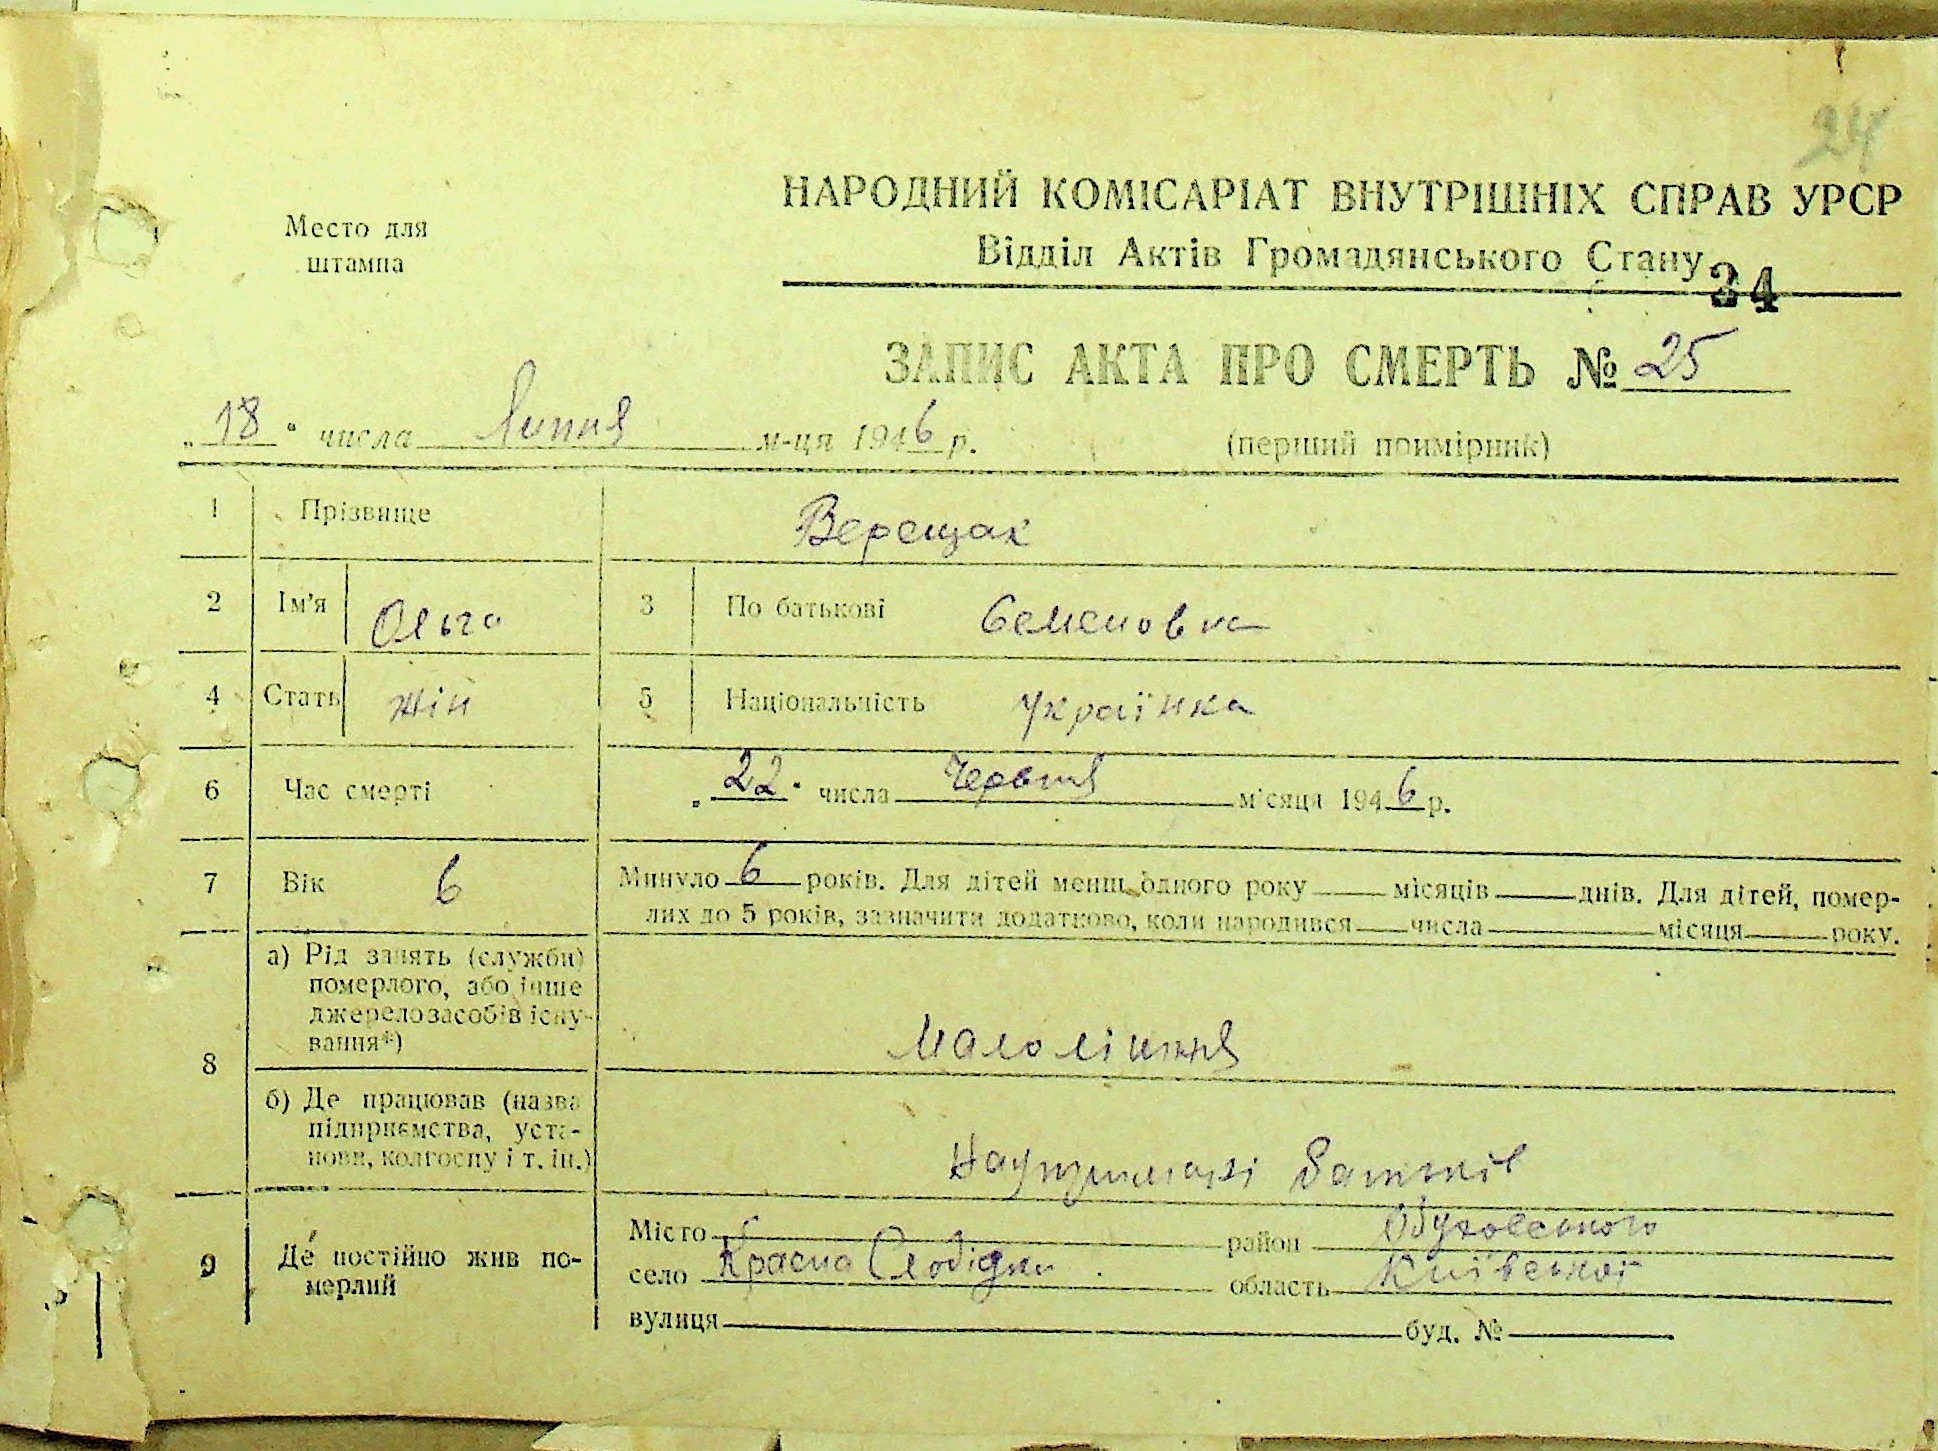 24
НАРОДНИЙ КОМІСАРІАТ ВНУТРІШНІХ СПРАВ УРСР
Место для
штампа
Відділ Актів Громадянського Стану
24
ЗАПИС АКТА ПРО СМЕРТЬ № 25
„18“ числа Липня м-ця 1946 р.
(перший примірник)
1 Прізвище Верещак
2 Ім'я Ольга 3 По батькові Семеновна
4 Стать жін 5 Національність Українка
6 Час смерті „22“ числа Червня місяця 1946 р.
7 Вік 6 Минуло 6 років. Для дітей менш одного року місяців днів. Для дітей, помер-
лих до 5 років, зазначити додатково, коли народився числа місяця року.
8
а) Рід занять (служби)
померлого, або інше
джерело засобів існу-
вання*)
Малолітня
б) Де працював (назва
підприємства, уста-
нови, колгоспу і т. ін.)
На утриманні батьків
9 Де постійно жив по-
мерлий
Місто район Обуховського
село Красна Слобідка область Київської
вулиця буд. №